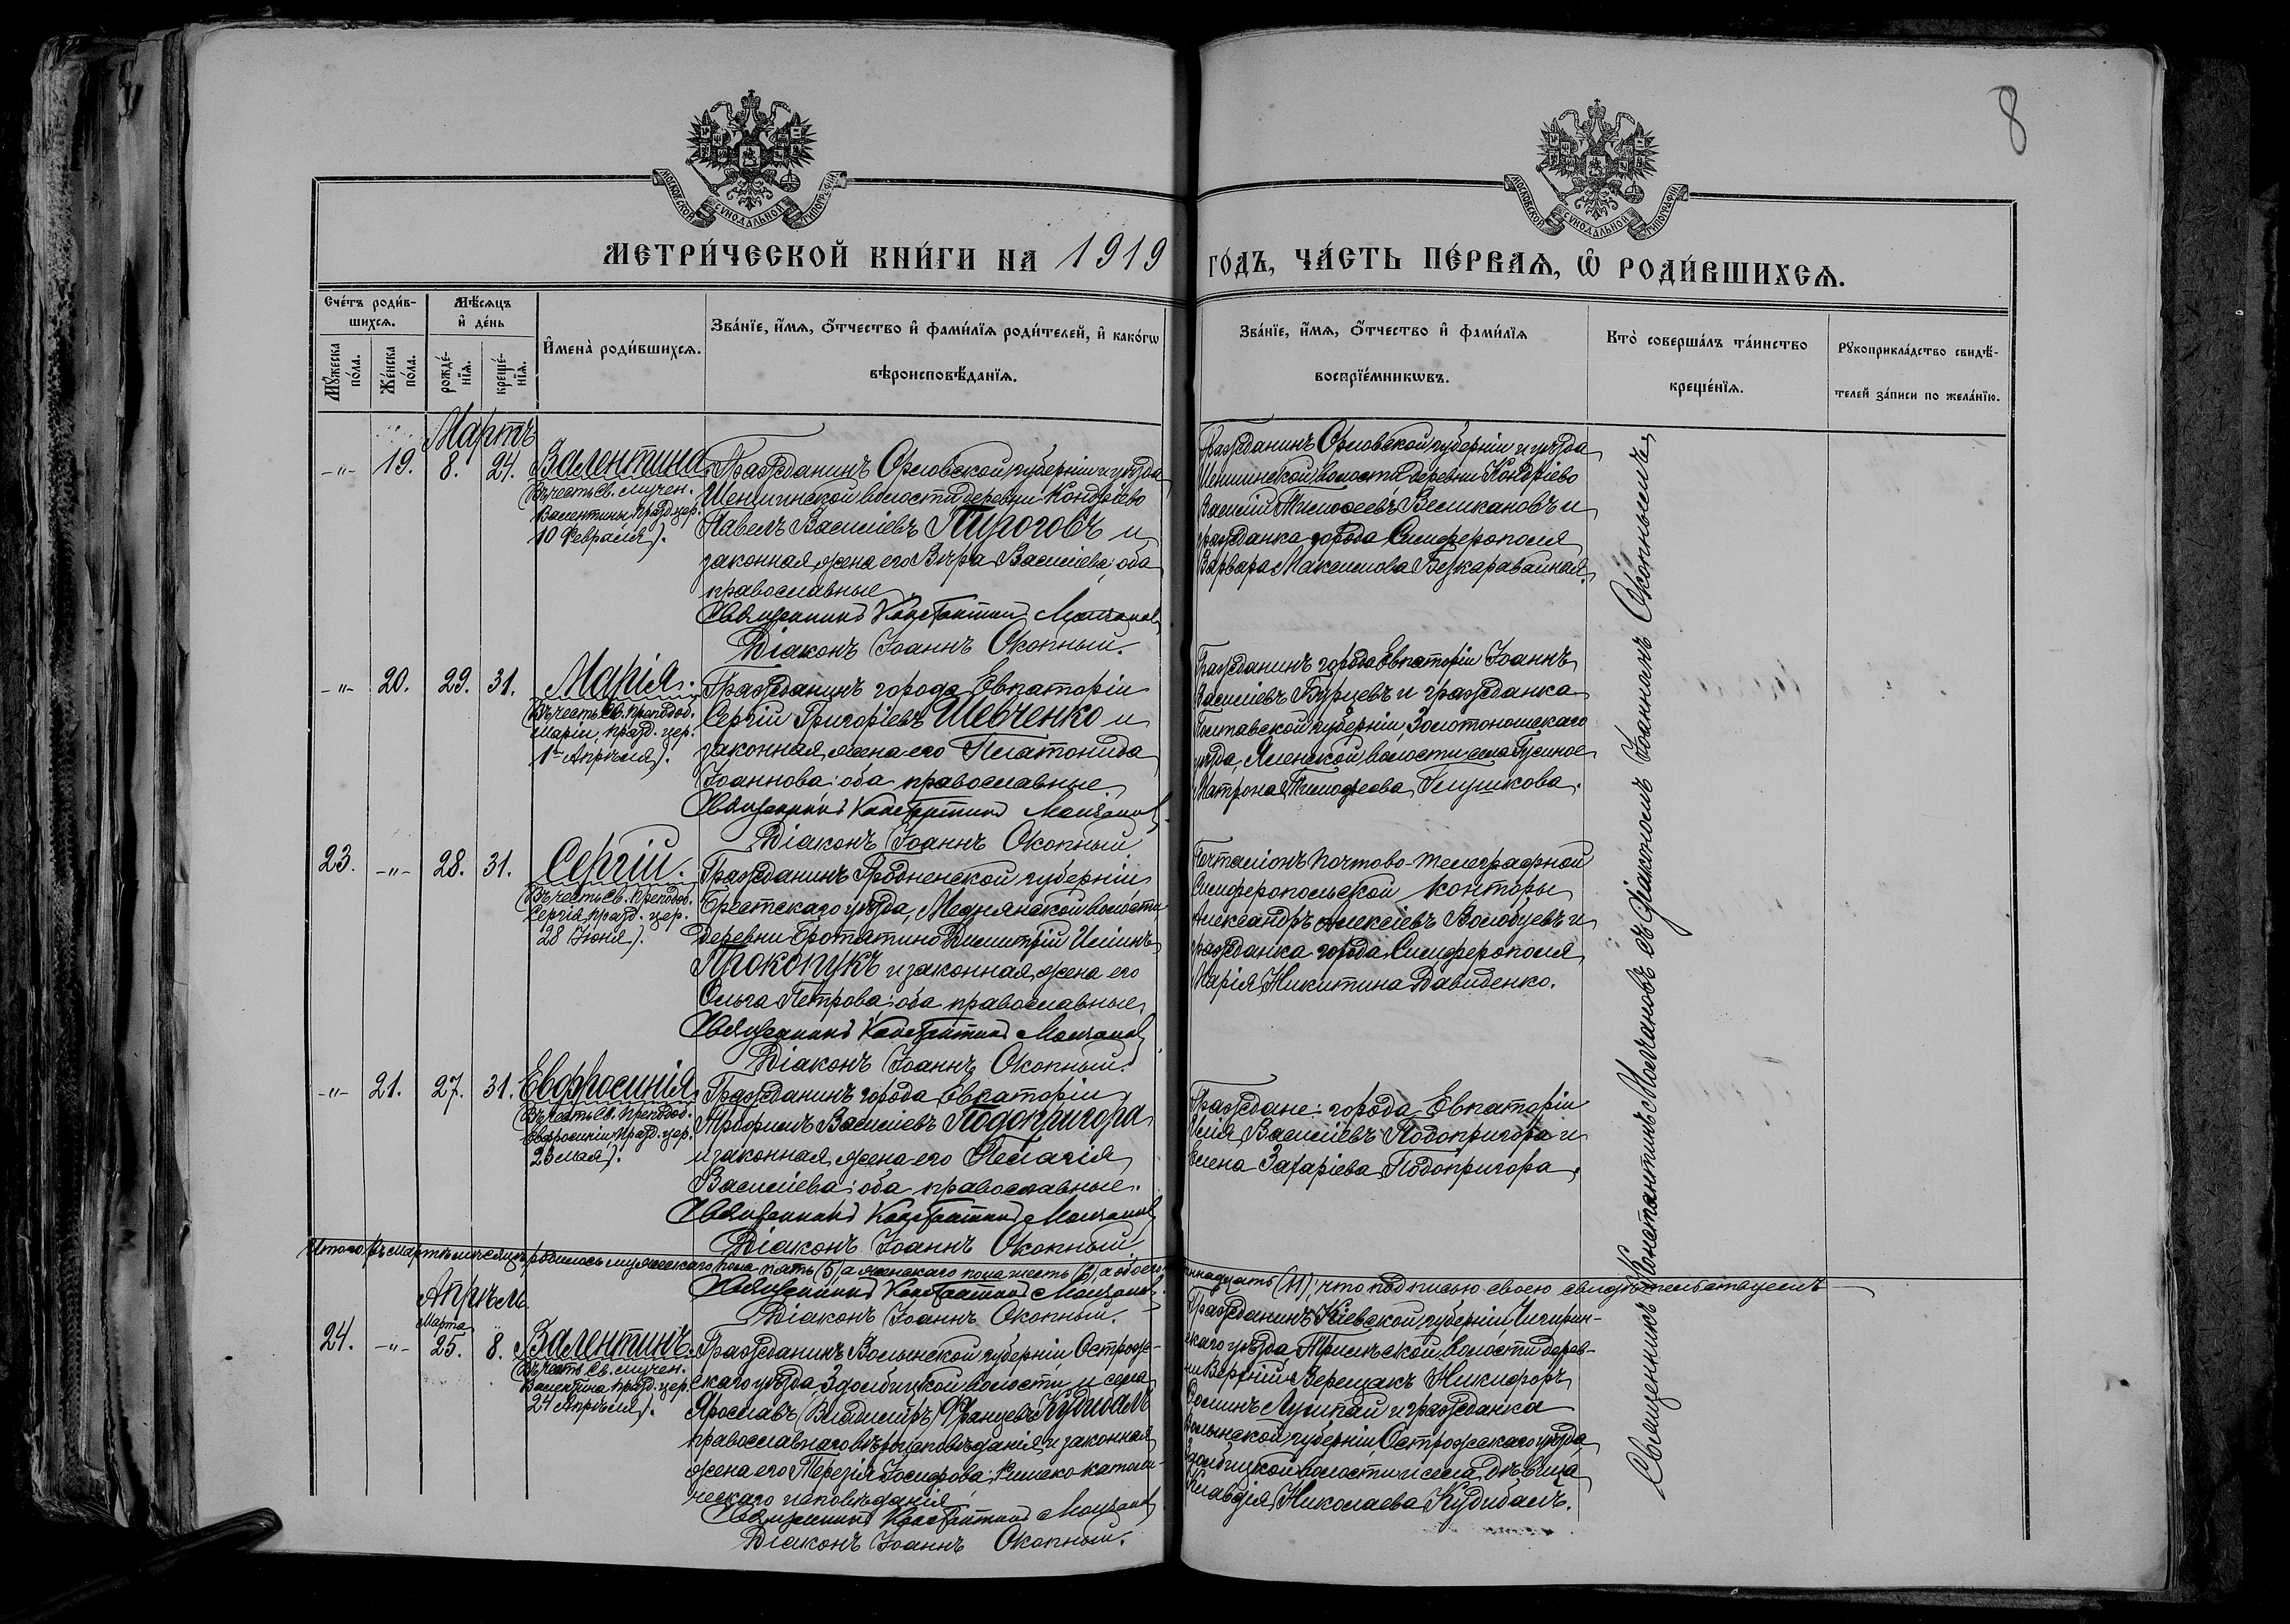 8
МОСКОВСКОЙ СѴНОДАЛЬНОЙ ТИПОГРАФІИ
МОСКОВСКОЙ СѴНОДАЛЬНОЙ ТИПОГРАФІИ
МЕТРИ́ЧЕСКОЙ КНИ́ГИ НА 1919
ГО́ДЪ, ЧА́СТЬ ПЕ́РВАѦ, Ѽ РОДИ́ВШИХСѦ.
Сче́тъ роди́в-
шихсѧ.
Мѣ́сѧцъ
и҆ де́нь
Мꙋ́жеска
по́ла.
Же́нска
по́ла.
рожде́-
нїѧ.
креще́-
нїѧ.
И҆мена̀ роди́вшихсѧ.
Зва́нїе, и҆́мѧ, ѻ҆́тчество и҆ фами́лїѧ роди́телей, и҆ како́гѡ
вѣроисповѣ́данїѧ.
Зва́нїе, и҆́мѧ, ѻ҆́тчество и҆ фами́лїѧ
воспрїе́мникѡвъ.
Кто̀ соверша́лъ та́инство
креще́нїѧ.
Рꙋкоприкла́дство свидѣ́-
телей за́писи по жела́нїю.
Мартъ
-"- 19. 8. 24. Валентина.
(Въ честь Св. мучен.
Валентины, празд. цер.
10 Февраля).
Гражданинъ Орловской губерніи и уѣзда
Шеншинской волости деревни Кондрево
Павелъ Василіевъ Пироговъ и
законная жена его Вѣра Василіева; оба
православные
Священникъ Константинъ Молчановъ
Діаконъ Іоаннъ Окопный.
Гражданинъ Орловской губерніи и уѣзда
Шеншинской волости деревни Кондрево
Василій Тимофеевъ Великановъ и
гражданка города Симферополя
Варвара Максимова Безкаравайная.
-"- 20. 29. 31. Марія.
(Въ честь Св. преподоб.
Маріи, празд. цер.
1го Апрѣля).
Гражданинъ города Евпаторіи
Сергій Григоріевъ Шевченко и
законная жена его Платонида
Іоаннова; оба православные
Священникъ Константинъ Молчановъ
Діаконъ Іоаннъ Окопный
Гражданинъ города Евпаторіи Іоаннъ
Василіевъ Бурцевъ и гражданка
Полтавской губерніи, Золотоношскаго
уѣзда, волости села Гусиное
Матрона Тимофеева Глушкова.
23. -"- 28. 31. Сергій.
(Въ честь Св. преподоб.
Сергія, празд. цер.
28 Іюня).
Гражданинъ Гродненской губерніи
Брестскаго уѣзда, Меднянской волости
деревни Димитрій Ильинъ
Прокопукъ и законная жена его
Ольга Петрова; оба православные.
Священникъ Константинъ Молчановъ
Діаконъ Іоаннъ Окопный.
Почталіонъ почтово-телеграфной
Симферопольской конторы
Александръ Алексіевъ Володцевъ и
гражданка города Симферополя
Марія Никитина Давиденко.
-"- 21. 27. 31. Евфросинія.
(Въ честь Св. преподоб.
Евфросиніи, празд. цер.
23 мая).
Гражданинъ города Евпаторіи
Трофимъ Василіевъ Подопригора
и законная жена его Пелагія
Василіева; оба православные.
Священникъ Константинъ Молчановъ
Діаконъ Іоаннъ Окопный
Граждане города Евпаторіи
Илія Василіевъ Подопригора и
Елена Захаріева Подопригора.
Итого въ мартѣ мѣсяцѣ родилось мужескаго пола пять (5), а женскаго пола шесть (6), а обоего
иннадцать (11); что подписью своею свидѣтельствуемъ
Священникъ Константинъ Молчановъ
Діаконъ Іоаннъ Окопный.
Апрѣль.
Марта
24. -"- 25. 8. Валентинъ.
(Въ честь Св. мучен.
Валентина празд. цер.
24 Апрѣля).
Гражданинъ Волынской губерніи Острож-
скаго уѣзда, Здолбицкой волости и села
Ярославъ (Владимиръ) Францевъ Кудибалъ
православнаго вѣроисповѣданія и законная
жена его Терезія Іосифова; Римско-католи-
ческаго исповѣданія
Священникъ Константинъ Молчановъ
Діаконъ Іоаннъ Окопный.
Гражданинъ Кіевской губерніи, Чигирин-
скаго уѣзда, волости дерев-
ни Верхній Верещакъ Никифоръ
и гражданка
Волынской губерніи Острожскаго уѣзда
Здолбицкой волости и села, дѣвица
Клавдія Николаева Кудибалъ.
Священникъ Константинъ Молчановъ съ діакономъ Іоанномъ Окопнымъ